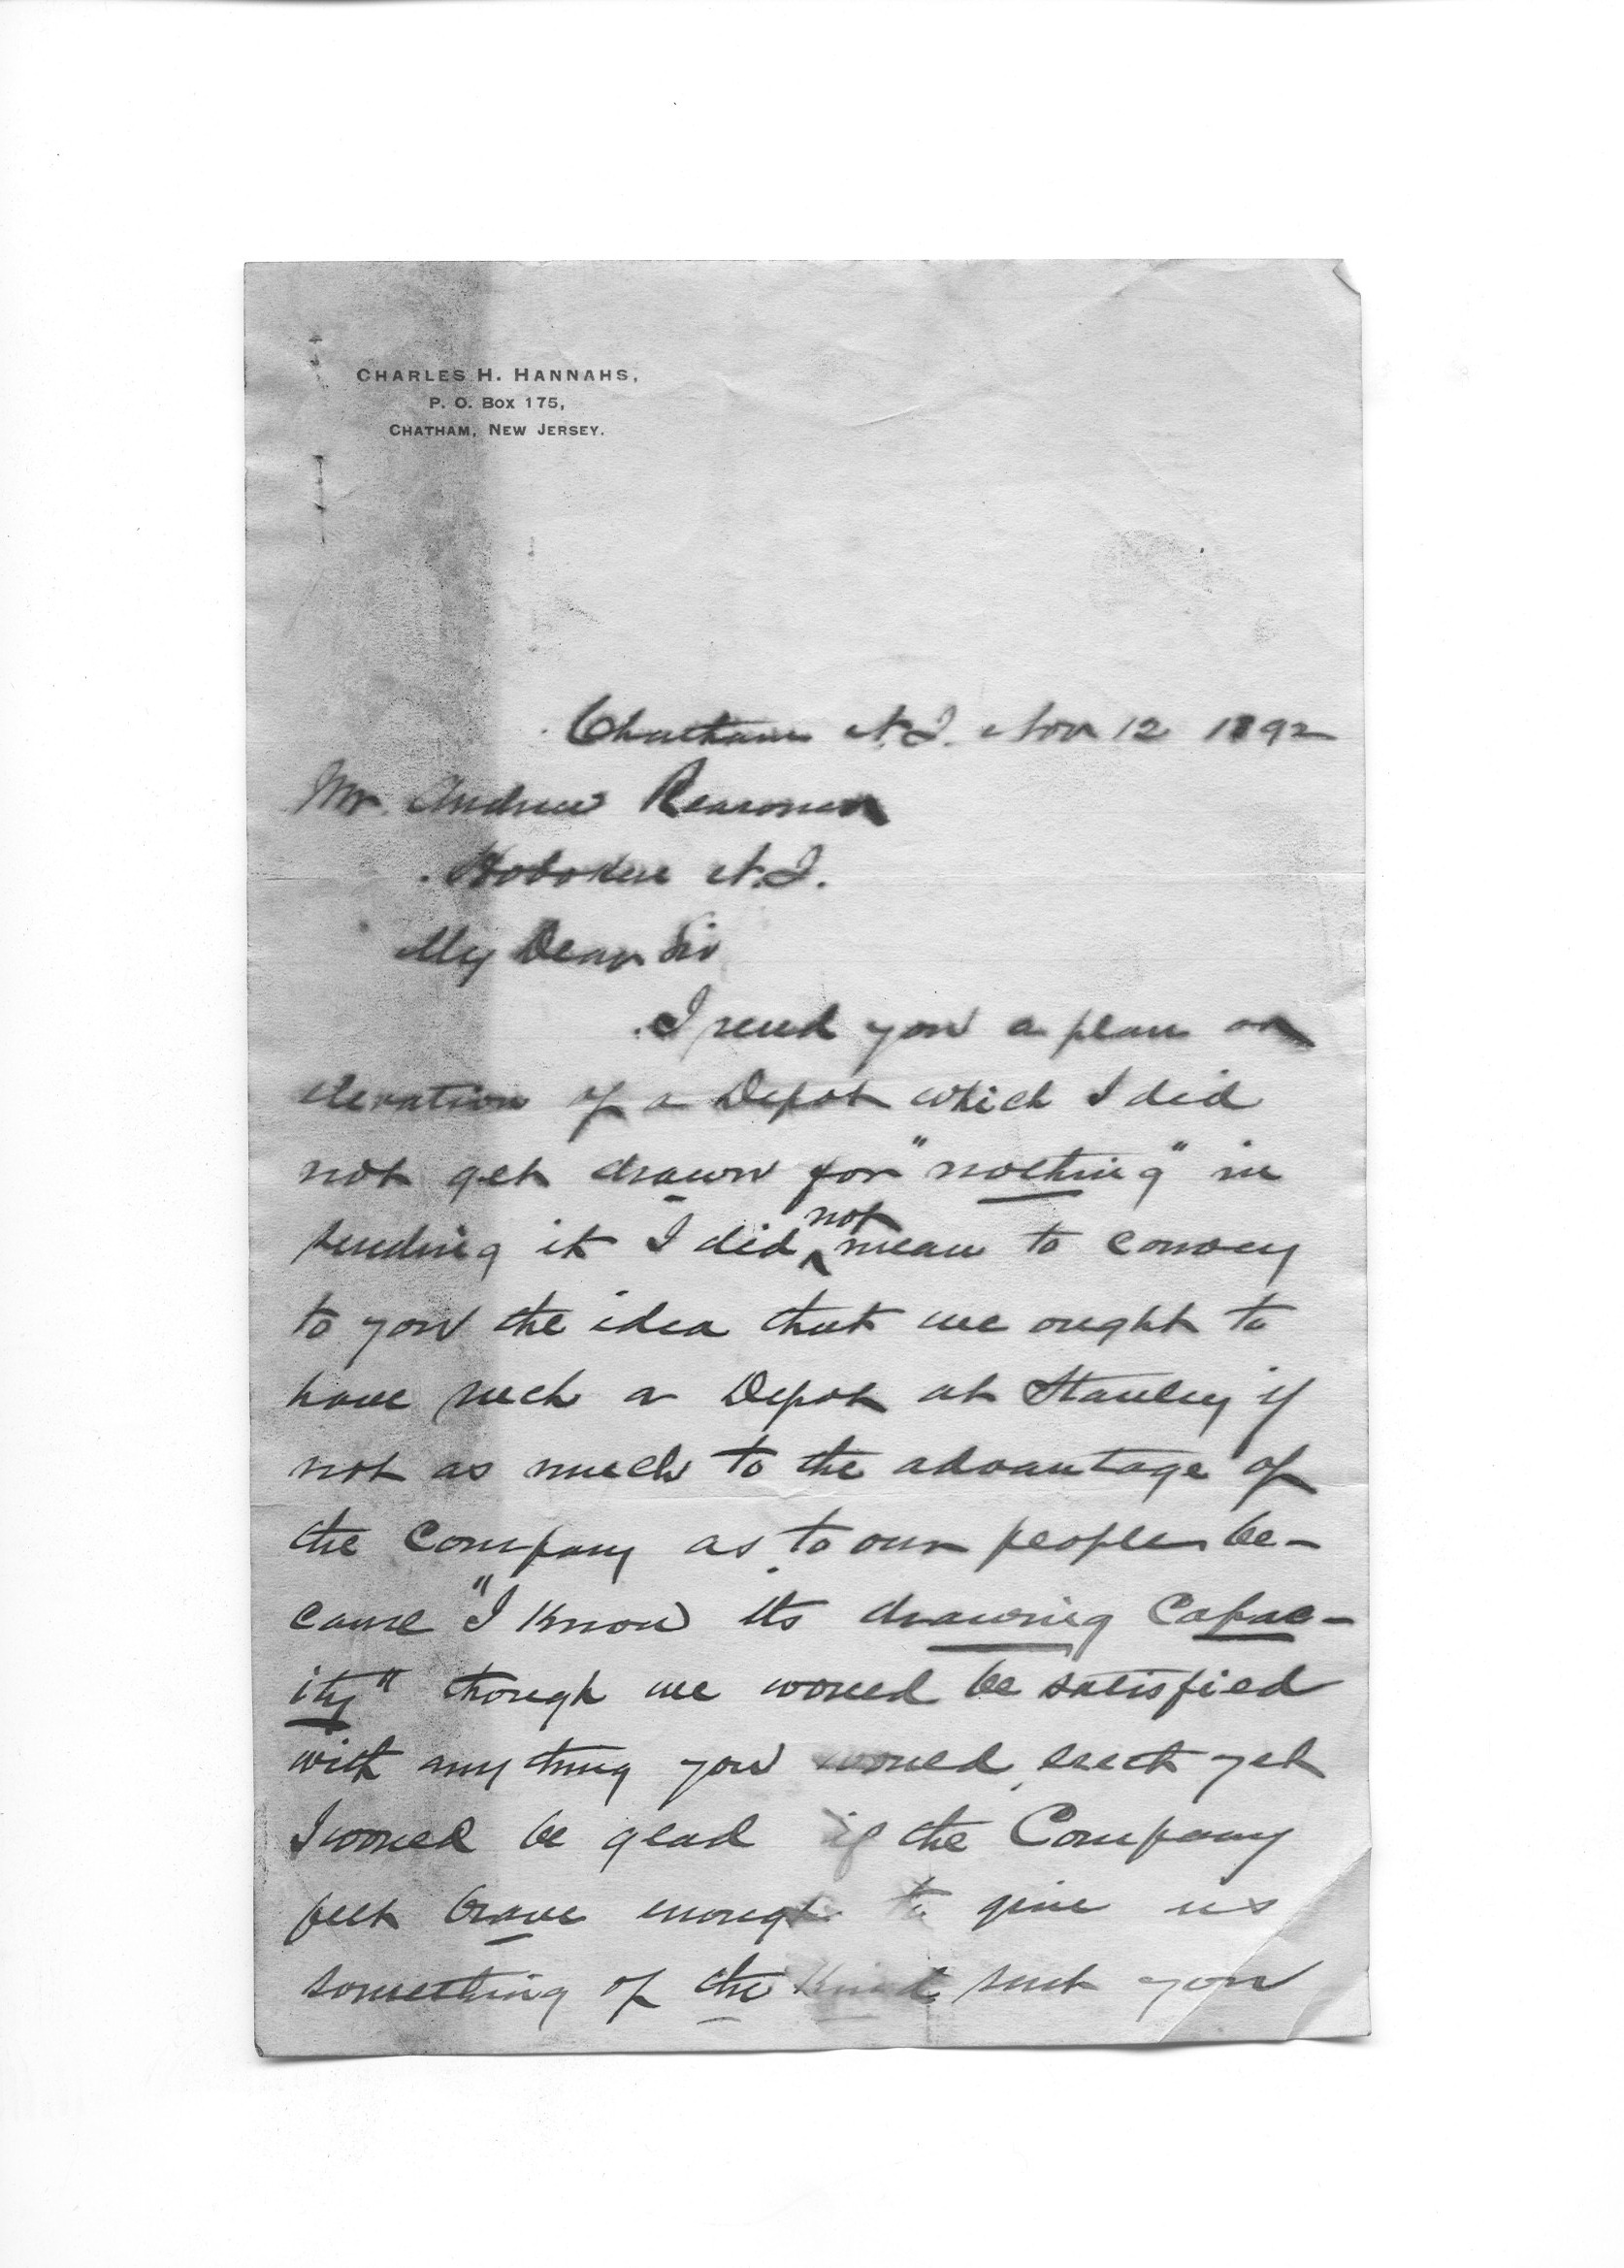 CHARLES H. HANNAHS,
P. O. BOX 175,
CHATHAM, NEW JERSEY.
Chatham N.J. Nov 12 1892
Mr. Andrew Reasoner
Hoboken N.J.
My Dear Sir
I send you a plan or
elevation of a Depot which I did
not get drawn for "nothing" in
sending it I did not mean to convey
to you the idea that we ought to
have such a Depot at Stanley if
not as much to the advantage of
the Company as to our people be-
cause "I know its drawing Capac-
ity" though we would be satisfied
with any thing you would erect yet
I would be glad if the Company
felt brave enough to give us
something of the kind such you